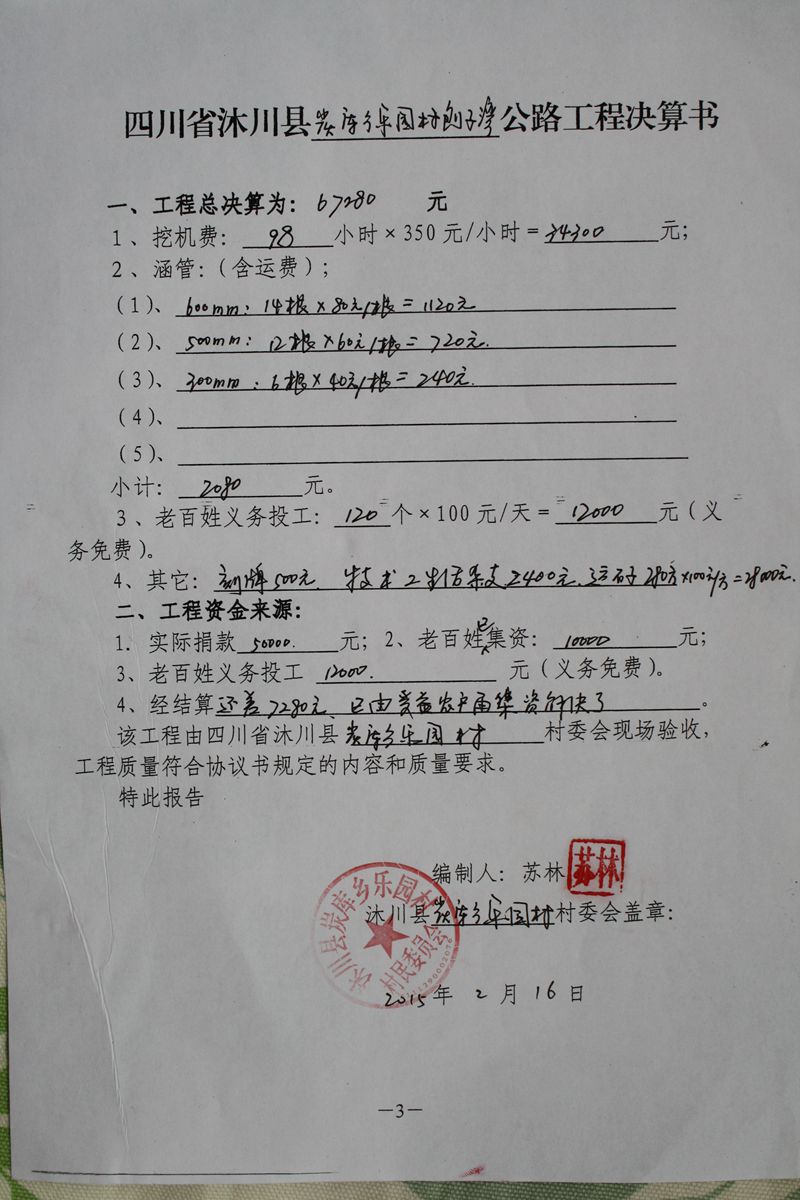 四川省沐川县炭库乡乐园村刨子湾公路工程决算书
一、工程总决算为：67280 元
1、挖机费：98小时×350元/小时=34300元；
2、涵管：（含运费）；
（1）、600mm：14根×80元/根=1120元
（2）、500mm：12根×60元/根=720元.
（3）、300mm：6根×40元/根=240元.
（4）、
（5）、
小计：2080元。
3、老百姓义务投工：120个×100元/天=12000元（义
务免费）。
4、其它：刻牌500元、技术工生活开支2400元、运石子280方×100元/方=28000元.
二、工程资金来源：
1．实际捐款50000.元；2、老百姓已集资：10000元；
3、老百姓义务投工12000.元（义务免费）。
4、经结算还差7280元、已由受益农户再集资解决了。
该工程由四川省沐川县炭库乡乐园村村委会现场验收，
工程质量符合协议书规定的内容和质量要求。
特此报告
编制人：苏林
苏林
沐川县炭库乡乐园村村委会盖章：
沐川县炭库乡乐园村
村民委员会
2015年2月16日
—3—